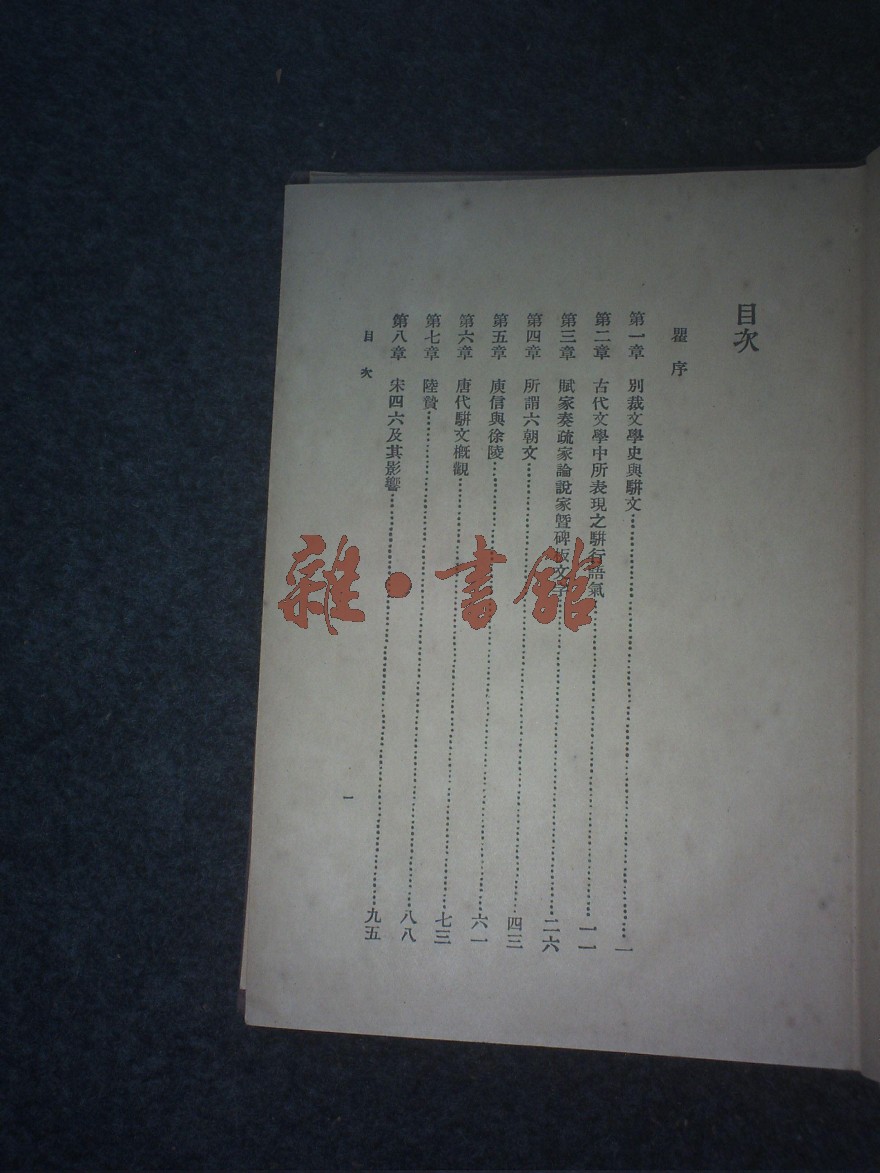 目次
瞿序
第一章 別裁文學史與駢文 一
第二章 古代文學中所表現之駢行語氣 一一
第三章 賦家奏疏家論說家暨碑板文字 二六
第四章 所謂六朝文 四三
第五章 庾信與徐陵 六一
第六章 唐代駢文概觀 七三
第七章 陸贄 八八
第八章 宋四六及其影響 九五
目次
一
雜·書館